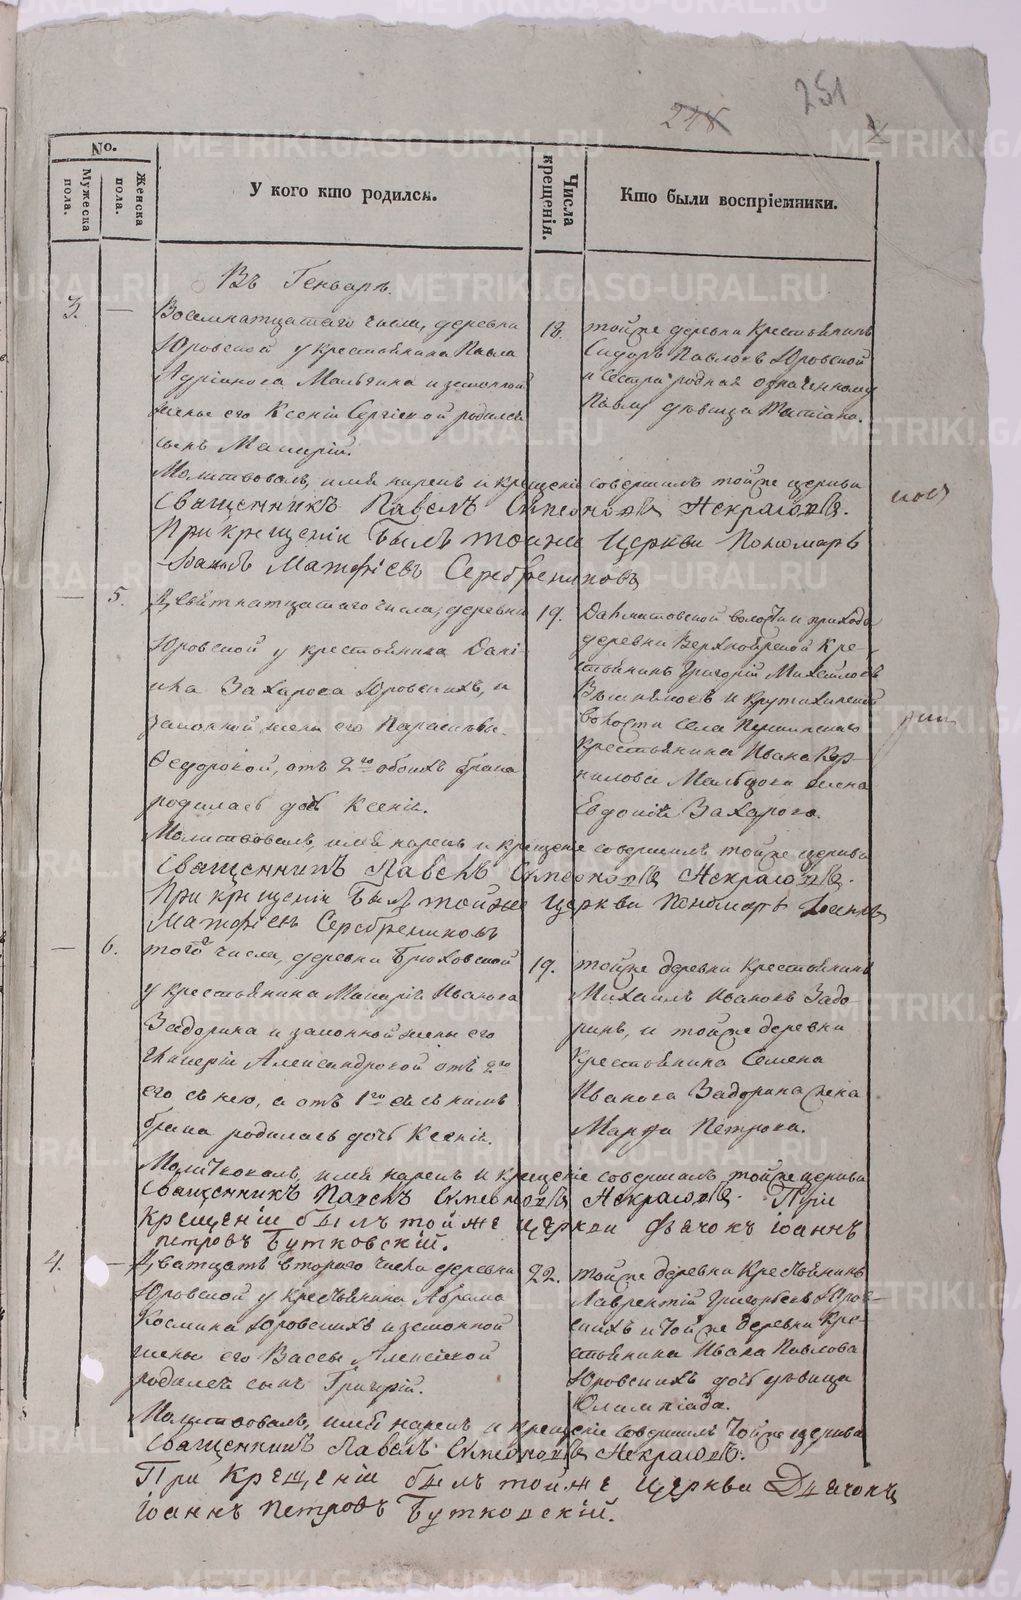 251
248
No.
Мужеска пола.
Женска пола.
У кого кто родился.
Числа крещенія.
Кто были воспріемники.
Въ Генварѣ.
3. — Восемнатцатаго числа, деревни 18. тойже деревни Крестьянинъ
Юровской у крестьянина Павла Сидоръ Павловъ Юровской
Адріанова Мальгина и законной и сестра родная означенному
жены его Ксеніи Сергіевой родился Павлу дѣвица Татіана.
сынъ Макарій.
Молитвовалъ, имя нарекъ и крещеніе совершилъ тойже церкви
Священникъ Павелъ Симеоновъ Некрасовъ.
При крещеніи былъ тойже Церкви Пономарь
Матѳіевъ Серебрениковъ
— 5. Девятнатцатаго числа, деревни 19. Далматовской волости и прихода
Юровской у крестьянина Дані- деревни Верхнойрской Кре-
ила Захарова Юровскихъ, и стьянинъ Григорій Михайловъ
законной жены его Парасковьи и Крутихинской
Ѳедоровой, отъ 2го обоихъ брака волости села
родилась дочь Ксенія. Крестьянина Ивана Кор-
нилова Мальцова жена
Евдокія Захарова.
Молитвовалъ, имя нарекъ и крещеніе совершилъ тойже церкви
Священникъ Павелъ Симеоновъ Некрасовъ.
При крещеніи былъ тойже Церкви Пономарь
Матѳіевъ Серебрениковъ
— 6. того числа, деревни Брюховской 19. тойже деревни Крестьянинъ
у крестьянина Макарія Иванова Михаилъ Ивановъ Задо-
Задорина и законной жены его ринъ, и тойже деревни
Гликеріи Александровой отъ 2го крестьянина Семена
его съ нею, а отъ 1го ея съ нимъ Иванова Задорина жена
брака родилась дочь Ксенія. Марфа Петрова.
Молитвовалъ, имя нарекъ и крещеніе совершилъ тойже церкви
Священникъ Павелъ Симеоновъ Некрасовъ. При
крещеніи былъ тойже церкви дьячокъ Іоаннъ
Петровъ Бутковскій.
4. — Дватцать втораго числа деревни 22. тойже деревни Крестьянинъ
Юровской у крестьянина Абрама Лаврентій Григорьевъ Юров-
Космина Юровскихъ и законной скихъ и тойже деревни Кре-
жены его Вассы Алексіевой стьянина Ивана Павлова
родился сынъ Григорій. Юровскихъ дочь дѣвица
Олимпіада.
Молитвовалъ, имя нарекъ и крещеніе совершилъ тойже церкви
Священникъ Павелъ Симеоновъ Некрасовъ.
При Крещеніи былъ тойже Церкви Дьячокъ
Іоаннъ Петровъ Бутковскій.
METRIKI.GASO-URAL.RU